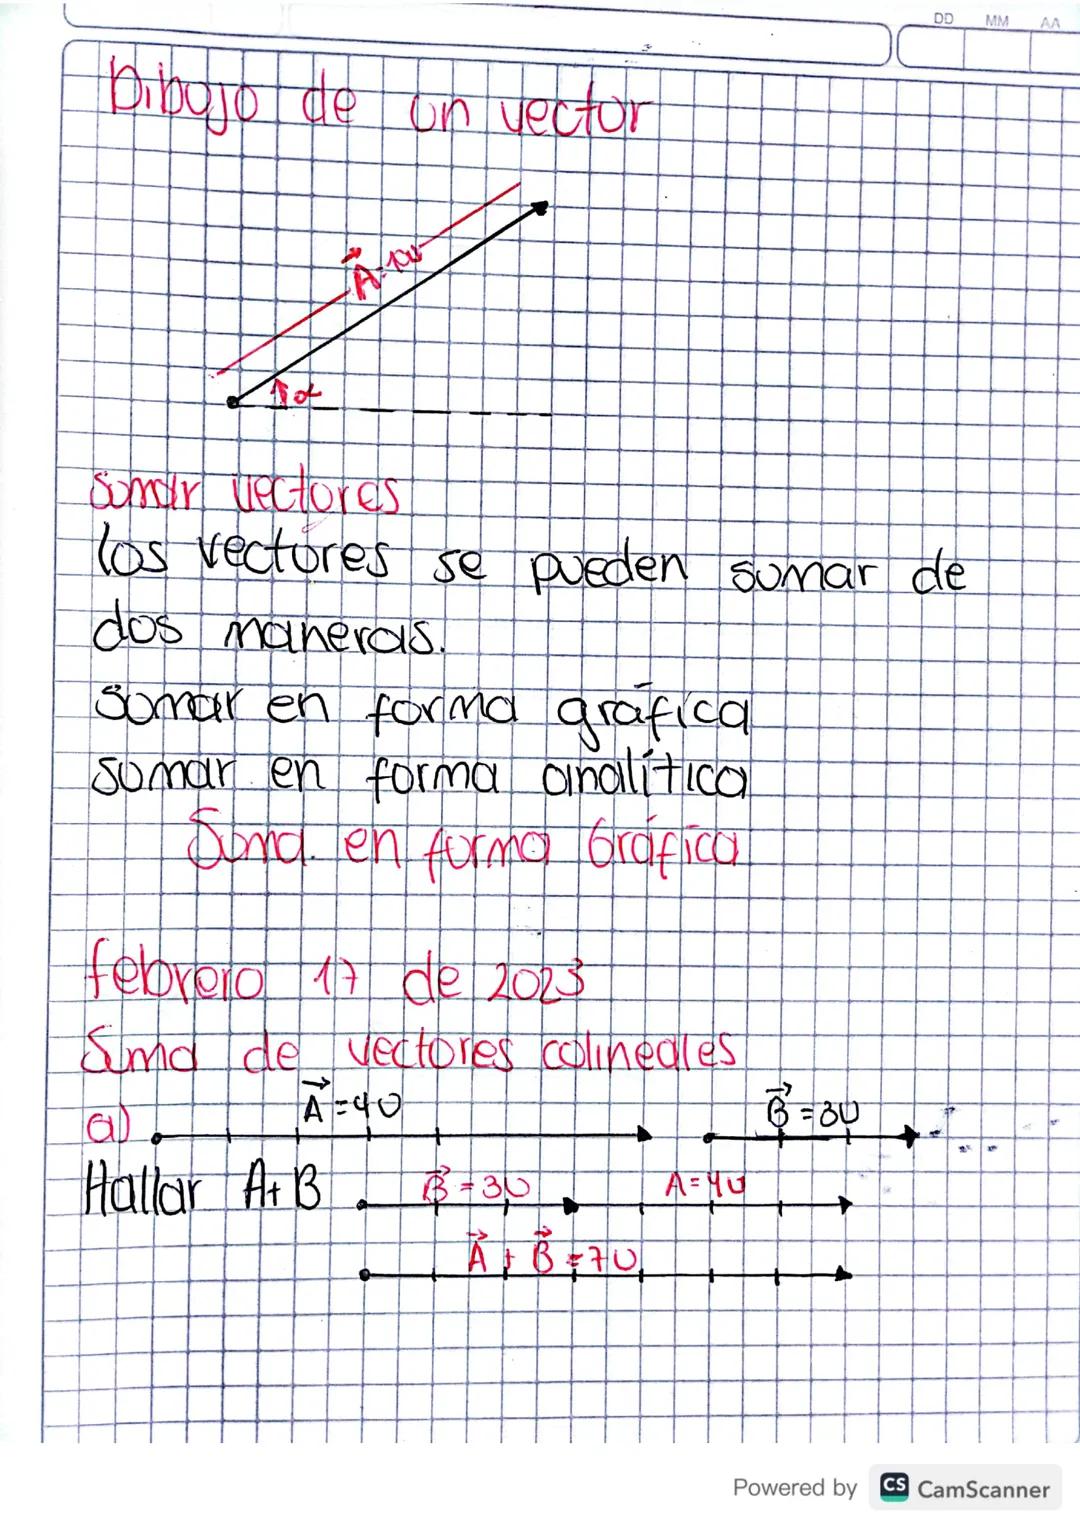 DD MM AA
Dibujo de un vector
A=10u
α
sumar vectores
los vectores se pueden sumar de
dos maneras.
sumar en forma gráfica
sumar en forma analítica
Suma en forma Gráfica
febrero 17 de 2023
Suma de vectores colineales
a) A=4U B=3U
Hallar A+B B=3U A=4U
A+B=7U
Powered by CS CamScanner